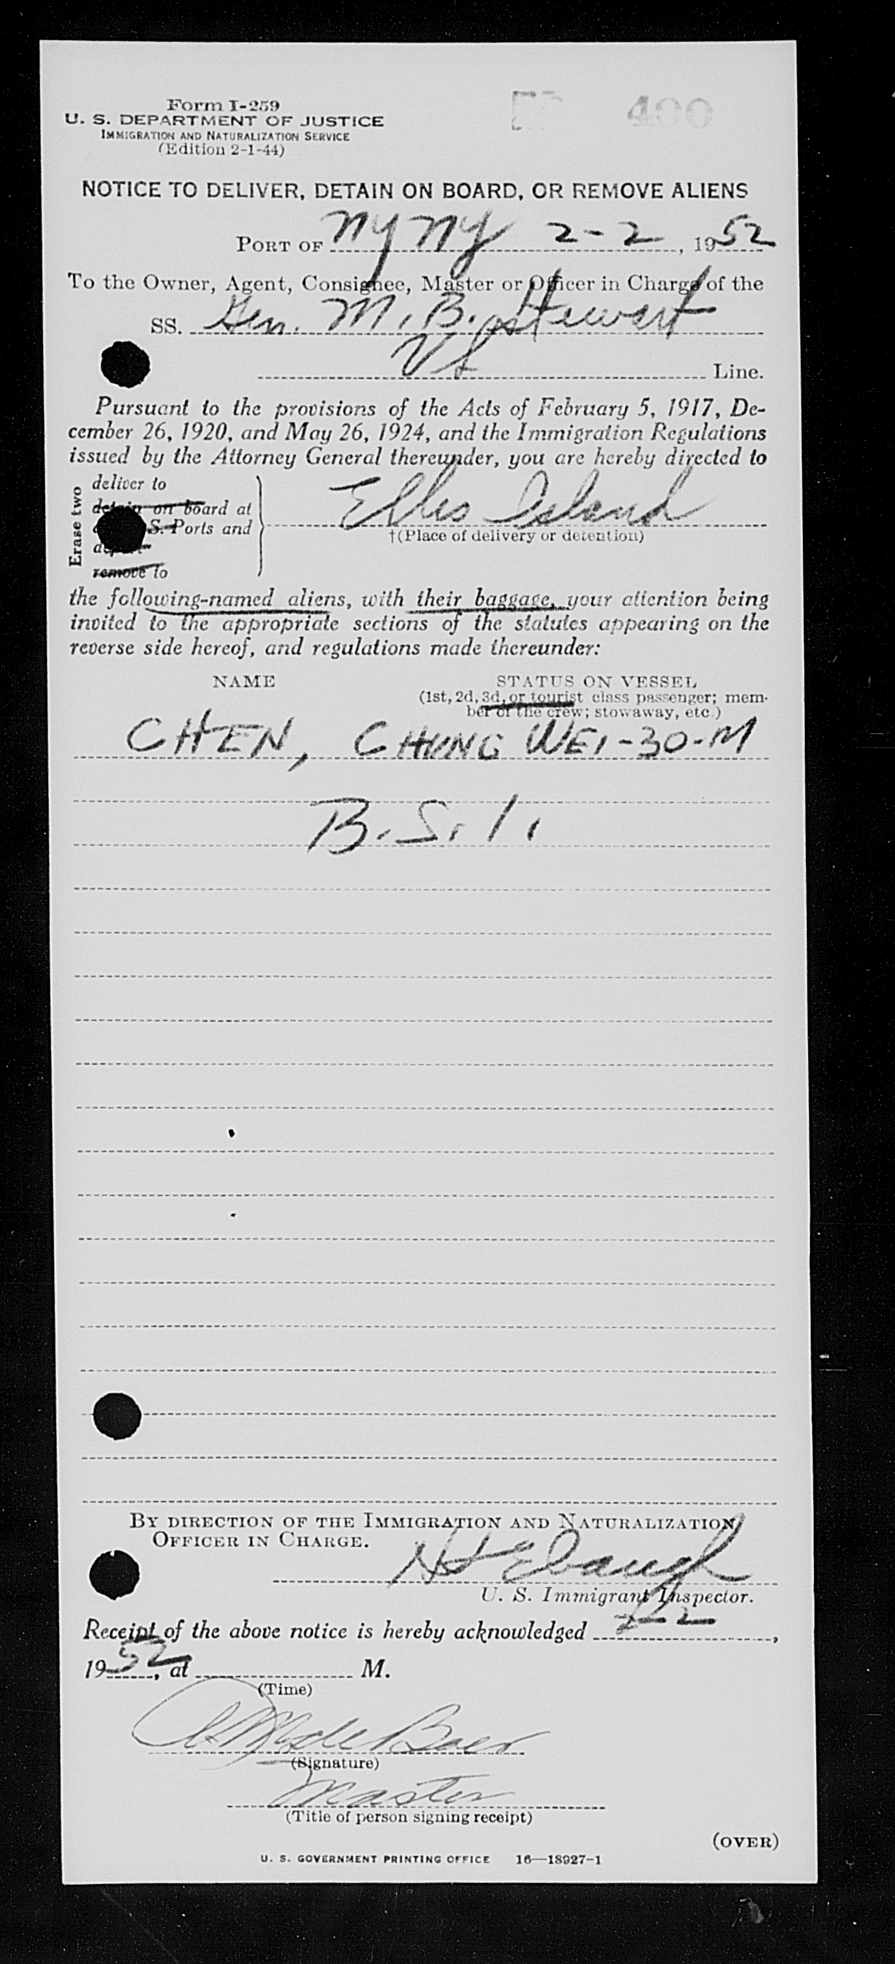 Form I-259
U. S. DEPARTMENT OF JUSTICE
IMMIGRATION AND NATURALIZATION SERVICE
(Edition 2-1-44)
400
NOTICE TO DELIVER, DETAIN ON BOARD, OR REMOVE ALIENS
PORT OF NY NY 2-2, 1952
To the Owner, Agent, Consignee, Master or Officer in Charge of the
SS. Gen. M. B. Stewart
US Line.
Pursuant to the provisions of the Acts of February 5, 1917, De-
cember 26, 1920, and May 26, 1924, and the Immigration Regulations
issued by the Attorney General thereunder, you are hereby directed to
Erase two
deliver to
detain on board at
S. Ports and
remove to
Ellis Island
†(Place of delivery or detention)
the following-named aliens, with their baggage, your attention being
invited to the appropriate sections of the statutes appearing on the
reverse side hereof, and regulations made thereunder:
NAME STATUS ON VESSEL
(1st, 2d, 3d, or tourist class passenger; mem-
ber of the crew; stowaway, etc.)
CHEN, CHUNG WEI-30-M
B.S.I.
BY DIRECTION OF THE IMMIGRATION AND NATURALIZATION
OFFICER IN CHARGE.
Ebaugh
U. S. Immigrant Inspector.
Receipt of the above notice is hereby acknowledged 2-2,
1952, at M.
(Time)
de Boer
(Signature)
Master
(Title of person signing receipt)
(OVER)
U. S. GOVERNMENT PRINTING OFFICE 16—18927-1